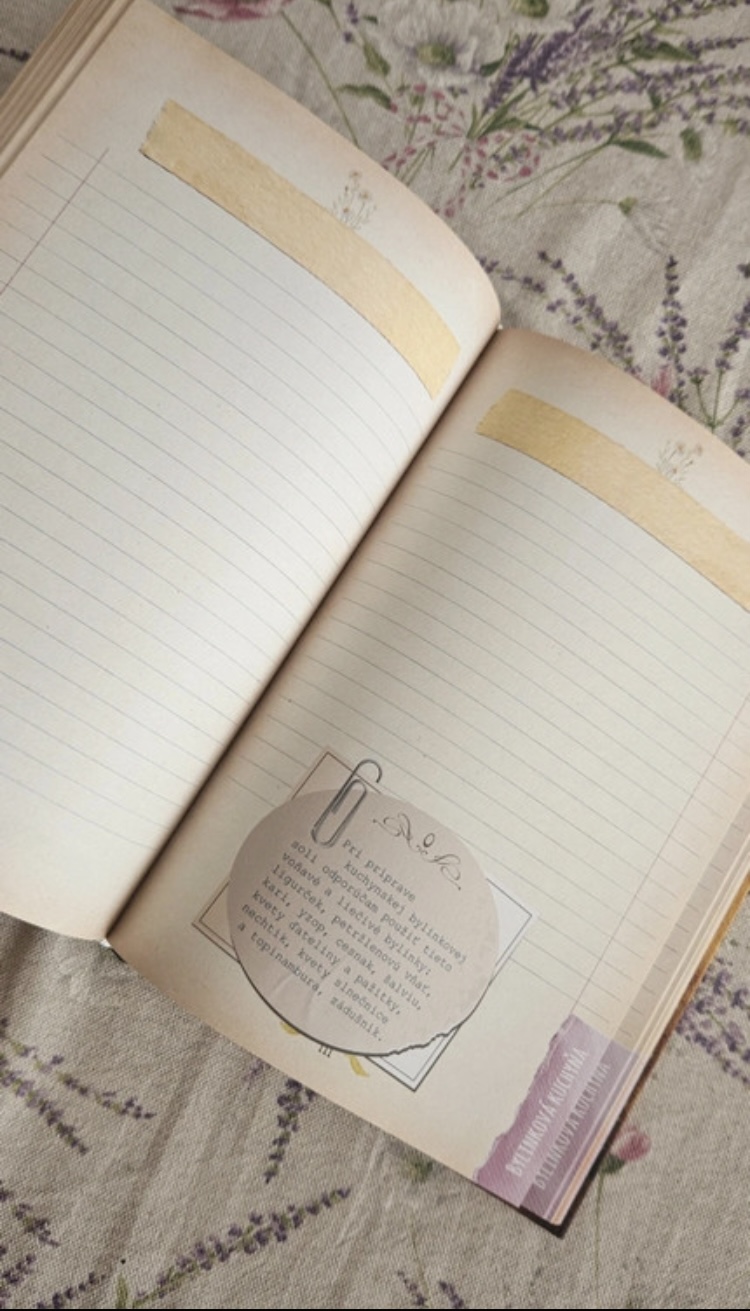 Pri príprave
kuchynskej bylinkovej
soli odporúčam použiť tieto
voňavé a liečivé bylinky:
ligurček, petržlenovú vňať,
kari, yzop, cesnak, šalviu,
kvety ďateliny a pažítky,
nechtík, kvety slnečnice
a topinambura, zádušník.
BYLINKOVÁ KUCHYŇA
BYLINKOVÁ KUCHYŇA